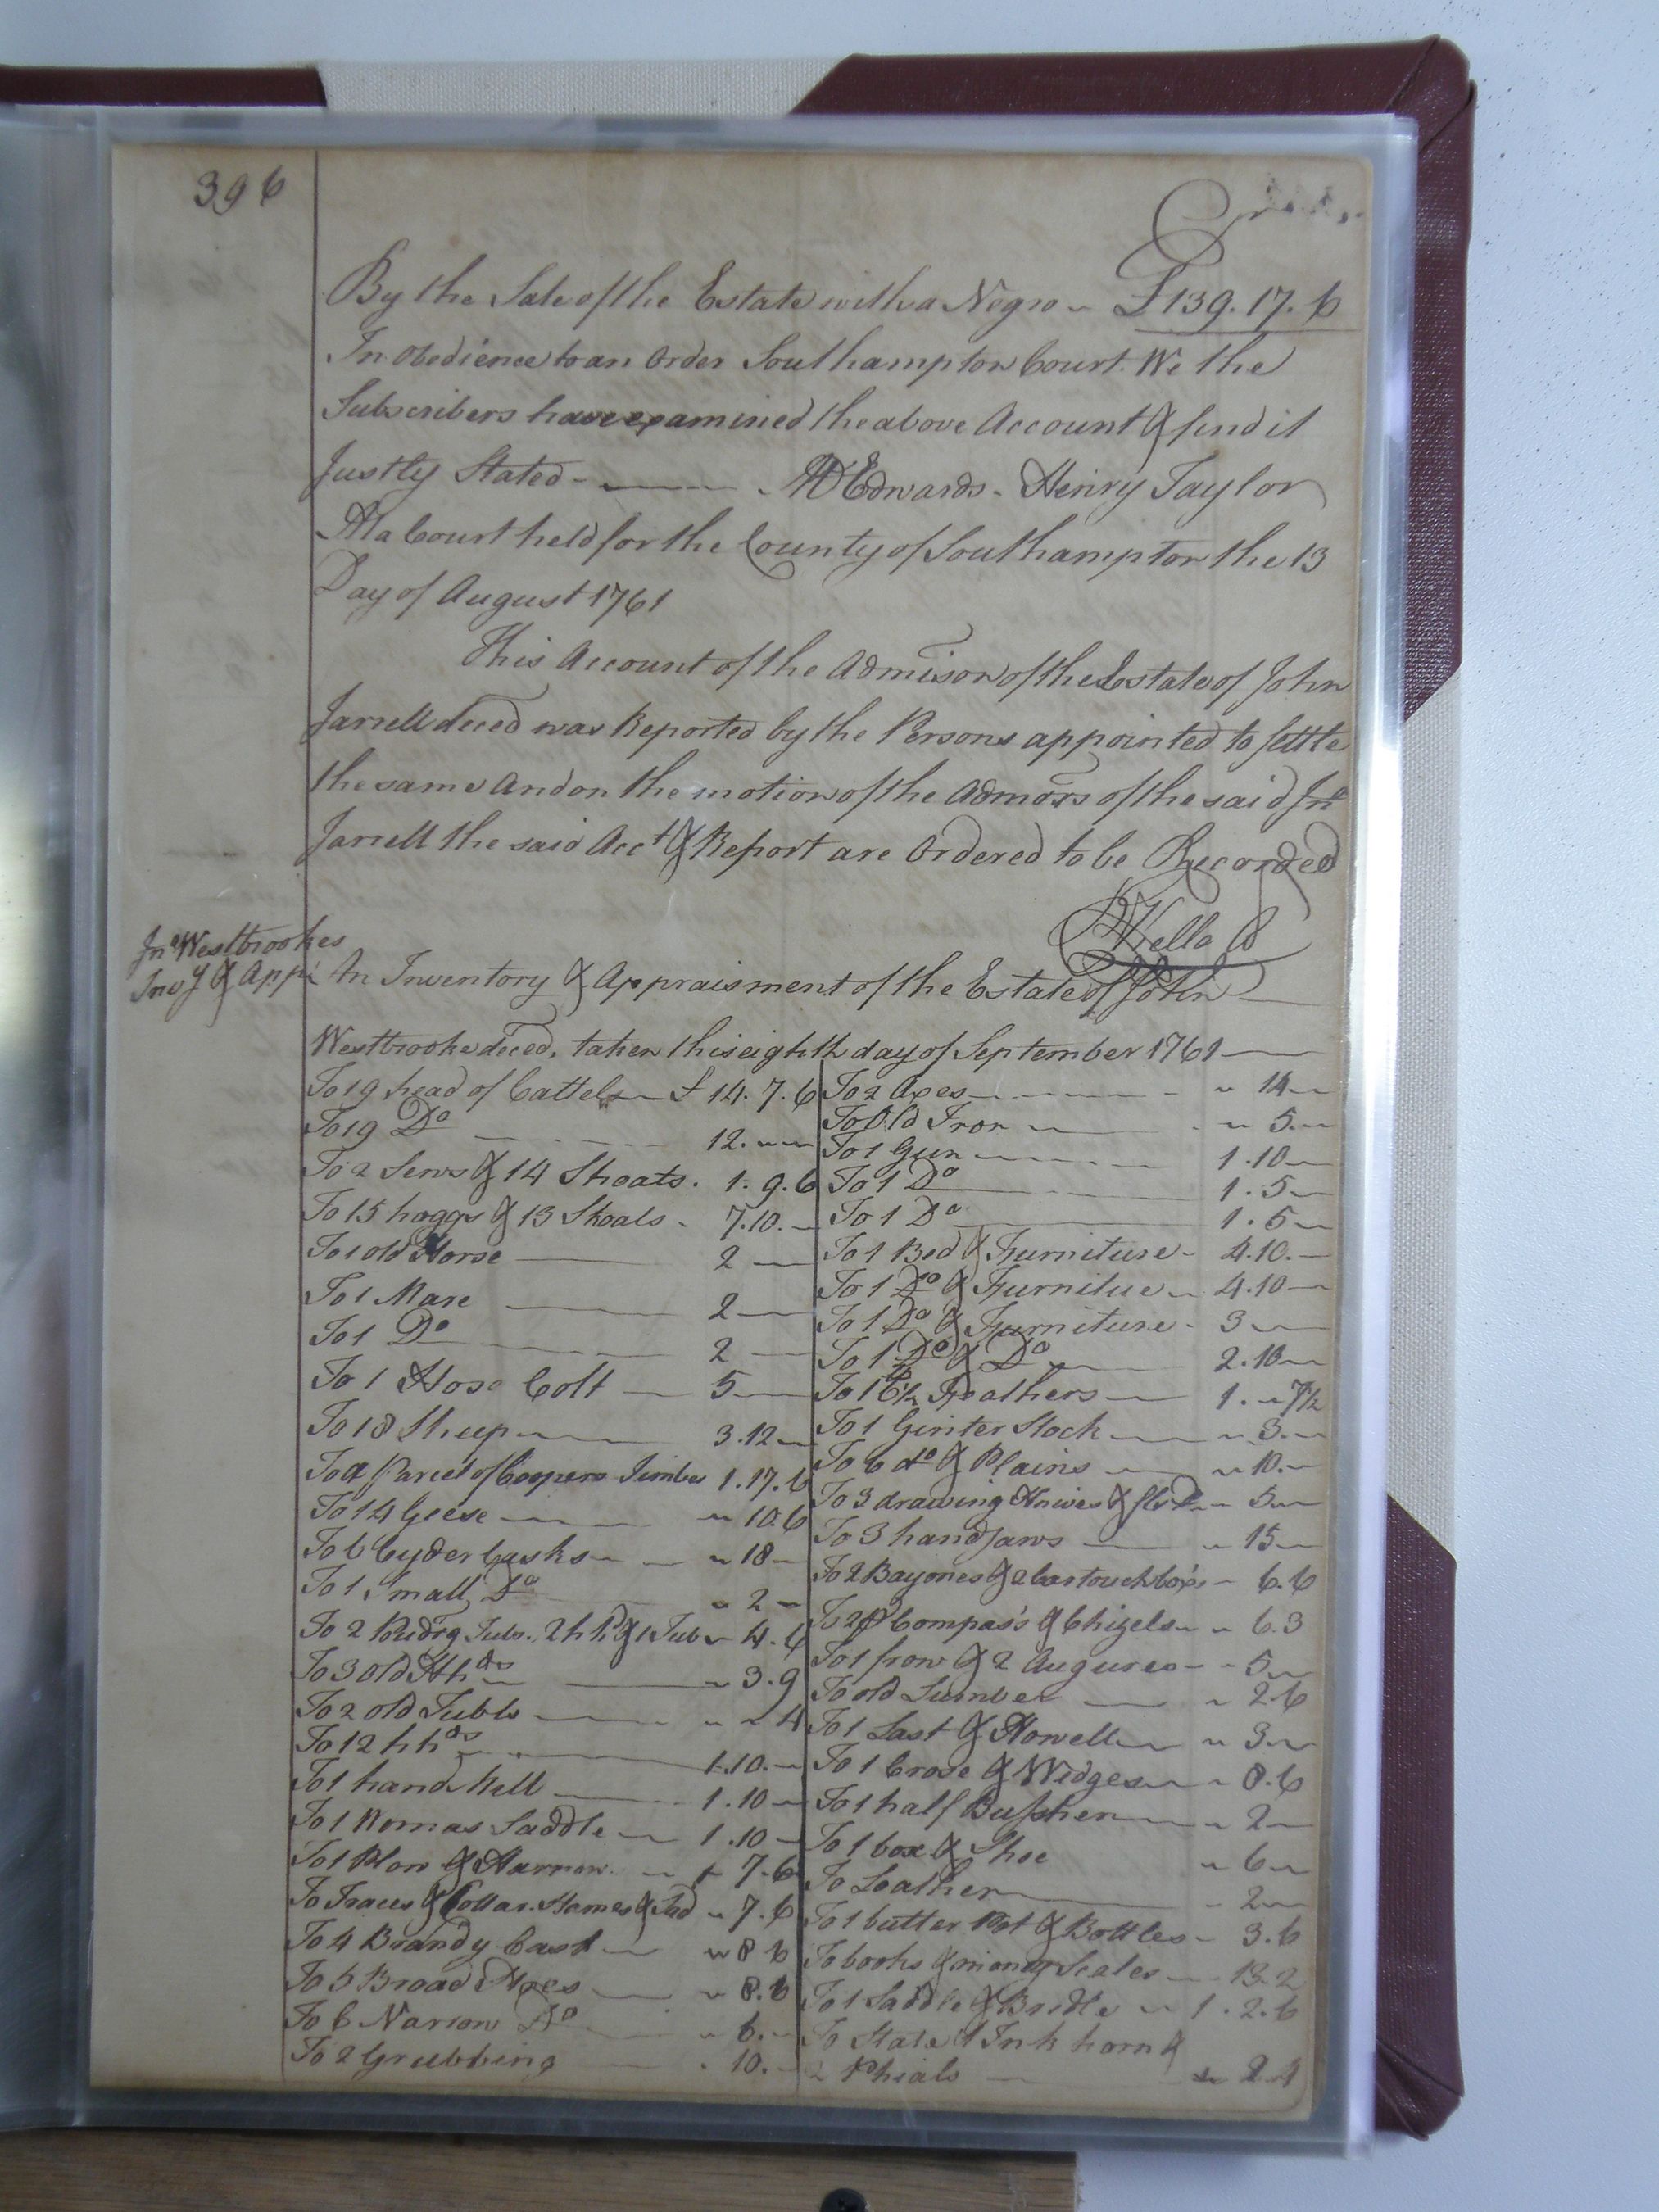 396
By the Sale of the Estate with a Negro £139.17.6
In Obedience to an Order Southampton Court. We the
Subscribers have examined the above Account & find it
Justly Stated - Edwards - Henry Taylor
At a Court held for the County of Southampton the 13
Day of August 1761
This Account of the Admison of the Estate of John
Jarrell deced was Reported by the Persons appointed to settle
the same And on the motion of the Admors of the said Jno
Jarrell the said Acct & Report are Ordered to be Recorded
Jno Westbrookes
Invy & Appt
An Inventory & Appraisment of the Estate of John
Westbrooke deced, taken this eighth day of September 1761
To 19 head of Cattel £ 14.7.6
To 19 Do 12.
To 2 Sows & 14 Shoats. 1.9.6
To 15 hoggs & 13 Shoals 7.10.
To 1 old Horse 2
To 1 Mare 2
To 1 Do 2
To 1 Hose Colt 5
To 18 Sheep 3.12
To a Parcel of Coopers Timber 1.17.6
To 14 Geese 10.6
To 6 Cyder Casks 18
To 1 Small Do 2
To 2 Tubs. 2 & 1 Tub 4.6
To 3 old Hhds 3.9
To 2 old Tubbs 4
To 12 hhds 1.10.
To 1 hand Mill 1.10
To 1 Womas Saddle 1.10
To 1 Plow & Harrow 7.6
To Traces & Collar. Hames & 7.6
To 4 Brandy Cask 8.6
To 5 Broad Hoes 8.6
To 6 Narrow Do 6.
To 2 Grubbing 10.
To 2 Axes 14
To Old Iron 5.
To 1 Gun 1.10
To 1 Do 1.5
To 1 Do 1.5
To 1 Bed & Furniture 4.10.
To 1 Do & Furnitue 4.10
To 1 Do & Furniture 3
To 1 Do & Do 2.10
To Feathers 1. 7½
To 1 Ginter Stock 3.
To 6 do & Plains 10.
To 3 drawing Knives & 5
To 3 handsaws 15
To 2 Bayones & 2 Cartouch box's 6.6
To 2 Compas's & Chizels 6.3
To 1 frow & 2 Augures 5
To old Lumber 2.6
To 1 Last & Howell 3
To 1 Crose & Widges 8.6
To 1 half Bushen 2
To 1 box & Shoe 6
To Leather 2
To 1 butter Pot & Bottles 3.6
To books & mony Scales 13.2
To 1 Saddle & Bridle 1.2.6
To Slate 1 Ink horn &
2 Phials 2.1